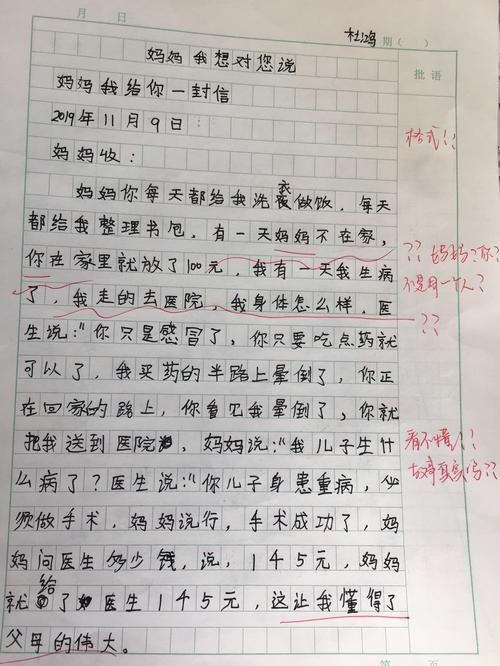 月 日 杜鸿 期( )
妈妈我想对您说 批语
妈妈我给你一封信
2019年11月9日: 格式!!
妈妈收:
妈妈你每天都给我洗衣做饭,每天
都给我整理书包,有一天妈妈不在家,
?? 妈妈?你?
你在家里就放了100元,我有一天我生病
不是同一个人?
了,我走的去医院,我身体怎么样,医
??
生说:“你只是感冒了,你只要吃点药就
可以了,我买药的半路上晕倒了,你正
在回家的路上,你看见我晕倒了,你就
把我送到医院,妈妈说:“我儿子生什
看不懂!!
么病了?医生说:“你儿子身患重病,必
故事真实吗??
须做手术,妈妈说行,手术成功了,妈
妈问医生多少钱,说,145元,妈妈
就给了医生145元,这让我懂得了
父母的伟大。
第 页